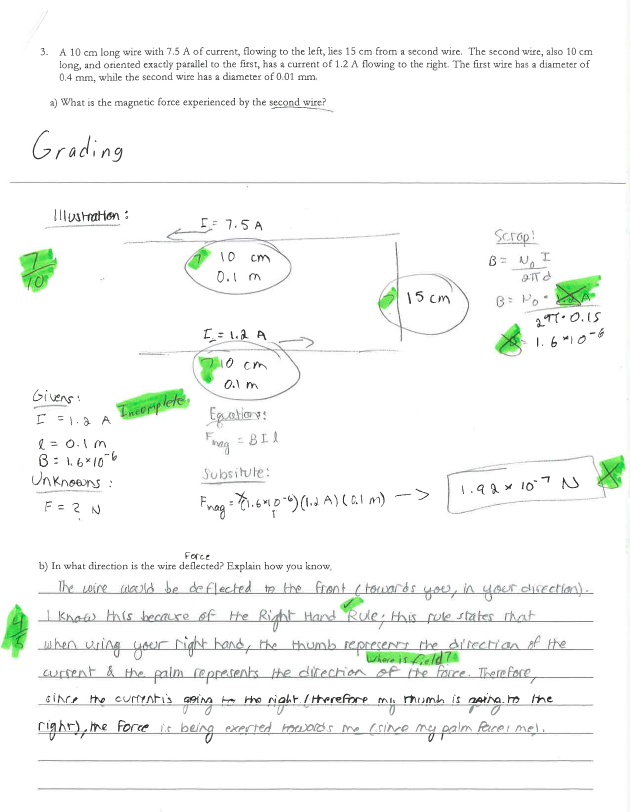 3. A 10 cm long wire with 7.5 A of current, flowing to the left, lies 15 cm from a second wire. The second wire, also 10 cm
long, and oriented exactly parallel to the first, has a current of 1.2 A flowing to the right. The first wire has a diameter of
0.4 mm, while the second wire has a diameter of 0.01 mm.
a) What is the magnetic force experienced by the second wire?
Grading
Illustration:
7/10
I = 7.5 A
10 cm
0.1 m
15 cm
I = 1.2 A
10 cm
0.1 m
Scrap:
B = N₀ I
2πd
B = N₀ ·
2π·0.15
= 1.6×10⁻⁶
Givens:
I = 1.2 A
l = 0.1 m
B = 1.6×10⁻⁶
Unknowns:
F = ? N
Incomplete.
Equations:
Fmag = BIl
Subsitute:
Fmag = (1.6×10⁻⁶)(1.2 A)(0.1 m) →
1.92 × 10⁻⁷ N
Force
b) In what direction is the wire deflected? Explain how you know.
4/5
The wire would be deflected to the front (towards you, in your direction).
I know this because of the Right Hand Rule; this rule states that
when using your right hand, the thumb represents the direction of the
Where is field?
current & the palm represents the direction of the force. Therefore,
since the current is going to the right (therefore my thumb is going to the
right), the force is being exerted towards me (since my palm faces me).